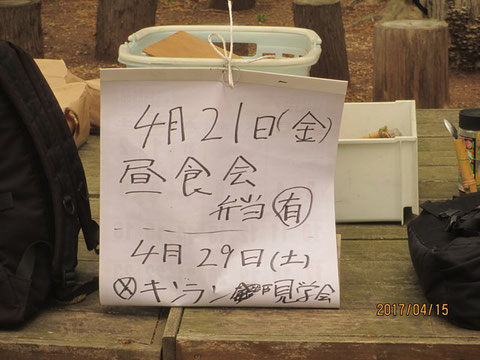 4月21日(金)
昼食会
弁当有
4月29日(土)
キンラン見学会
2017/04/15